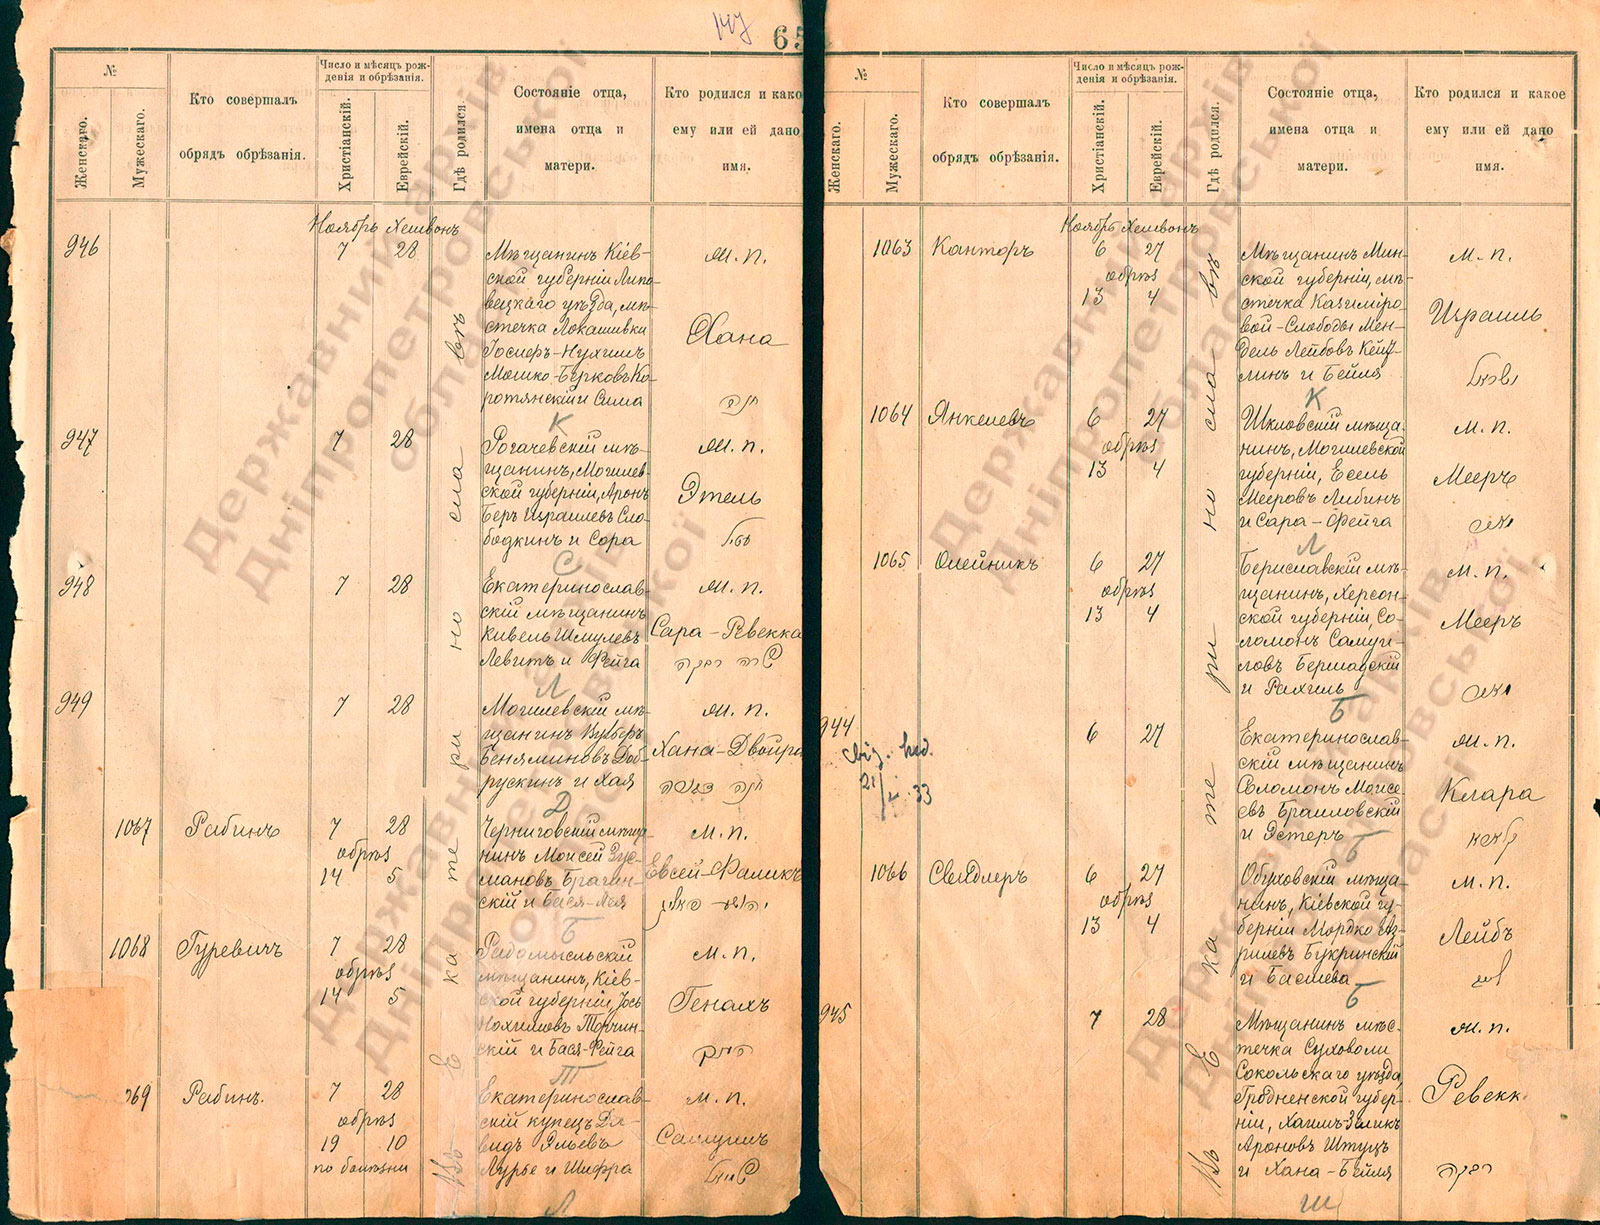 147
65
№
Женскаго.
Мужескаго.
Кто совершалъ
обрядъ обрѣзанія.
Число и мѣсяцъ рож-
денія и обрѣзанія.
Христіанскій.
Еврейскій.
Гдѣ родился.
Состояніе отца,
имена отца и
матери.
Кто родился и како
ему или ей дано
имя.
Ноябрь Хешвонъ
Въ Екатеринославѣ
946
7 28
Мѣщанинъ Кіев-
ской губерніи Липо-
вецкаго уѣзда, мѣ-
стечка Лукашивки
Мошко-Берковъ Ко-
ротянскій и Сима
м. п.
Хана
חנה
К
947
7 28
Рогачевскій мѣ-
щанинъ, Могилев-
ской губерніи, Аронъ
Беръ Израилевъ Сло-
бодкинъ и Сора
м. п.
Этель
С
948
7 28
Екатеринослав-
скій мѣщанинъ
Кивель Шмулевъ
Левитъ и Фейга
м. п.
Сара-Ревекка
שרה רבקה
Л
949
7 28
Могилевскій мѣ-
щанинъ
Беняминовъ Доб-
рускинъ и Хая
м. п.
Хана-Двойра
חנה
Д
1067
Рабинъ
7 28
обрѣз
14 5
Черниговскій мѣща
нинъ Моисей Зус-
мановъ Брагин-
скій и Бася-Лея
м. п.
Евсей-Фаликъ
Б
1068
Гуревичъ
7 28
обрѣз
14 5
Радомысльскій
мѣщанинъ, Кіев-
ской губерніи, Іось
Нохимовъ Торчин-
скій и Бася-Фейга
м. п.
Генахъ
Т
069
Рабинъ.
7 28
обрѣз
19 10
по болѣзни
Екатеринослав-
скій купецъ Да-
видъ Эльевъ
Лурье и Шифра
м. п.
Самуилъ
שמואל
Л
№
Женскаго.
Мужескаго.
Кто совершалъ
обрядъ обрѣзанія.
Число и мѣсяцъ рож-
денія и обрѣзанія.
Христіанскій.
Еврейскій.
Гдѣ родился.
Состояніе отца,
имена отца и
матери.
Кто родился и какое
ему или ей дано
имя.
Ноябрь Хешвонъ
Въ Екатеринославѣ
1063
Канторъ
6 27
обрѣз
13 4
Мѣщанинъ Мин-
ской губерніи, мѣ-
стечка Казиміро-
вой-Слободы Мен-
дель Лейбовъ Кейу-
линъ и Бейля
м. п.
Израиль
ישראל
К
1064
Янкелевъ
6 27
обрѣз
13 4
Шкловскій мѣща-
нинъ, Могилевской
губерніи, Есель
Мееровъ Либинъ
и Сара-Фейга
м. п.
Мееръ
מאיר
Л
1065
Олейникъ
6 27
обрѣз
13 4
Бериславскій мѣ-
щанинъ, Херсон-
ской губерніи, Со-
ломонъ Самуи-
ловъ Бершадскій
и Рахиль
м. п.
Мееръ
מאיר
Б
944
21/ 33
6 27
Екатеринослав-
скій мѣщанинъ
Соломонъ Моисе-
евъ Браиловскій
и Эстеръ
м. п.
Клара
Б
1066
Свидлеръ
6 27
обрѣз
13 4
Обуховскій мѣща-
нинъ, Кіевской гу-
берніи Мордко Аз-
рилевъ Букринскій
и Басшева
м. п.
Лейбъ
Б
945
7 28
Мѣщанинъ мѣс-
течка Суховоли
Сокольскаго уѣзда,
Гродненской губер-
ніи, Хаимъ-Зеликъ
Ароновъ Штуцъ
и Хана-Бейля
м. п.
Ревекк
רבקה
Ш
Державний архів
Дніпропетровської
області